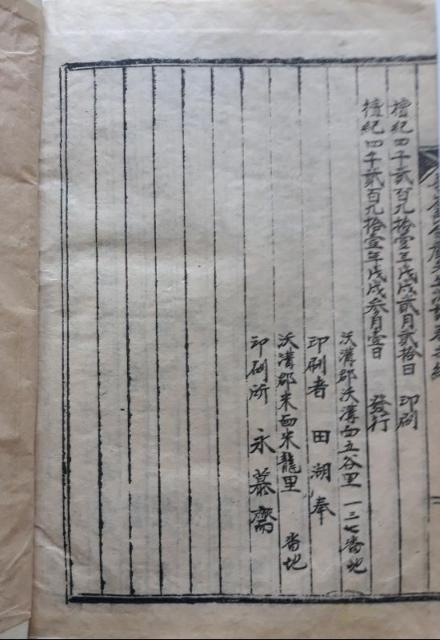 檀紀四千貳百九拾壹年戊戌貳月貳拾日 印刷
檀紀四千貳百九拾壹年戊戌參月壹日 發行
沃溝郡沃溝面玉谷里 一三七番地
印刷者 田湖奉
沃溝郡米面米龍里 番地
印刷所 永慕齋